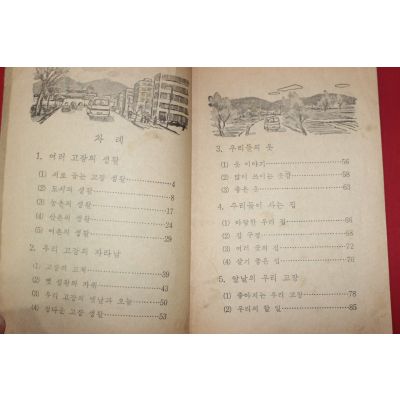 차 례
1. 여러 고장의 생활
(1) 서로 돕는 고장 생활 4
(2) 도시의 생활 8
(3) 농촌의 생활 17
(4) 산촌의 생활 24
(5) 어촌의 생활 29
2. 우리 고장의 자라남
(1) 고장의 고적 39
(2) 옛 생활의 자취 43
(3) 우리 고장의 옛날과 오늘 50
(4) 정다운 고장 생활 53
3. 우리들의 옷
(1) 옷 이야기 56
(2) 많이 쓰이는 옷감 58
(3) 좋은 옷 63
4. 우리들이 사는 집
(1) 아담한 우리 집 66
(2) 집 구경 68
(3) 여러 곳의 집 72
(4) 살기 좋은 집 76
5. 앞날의 우리 고장
(1) 좋아지는 우리 고장 78
(2) 우리의 할 일 85